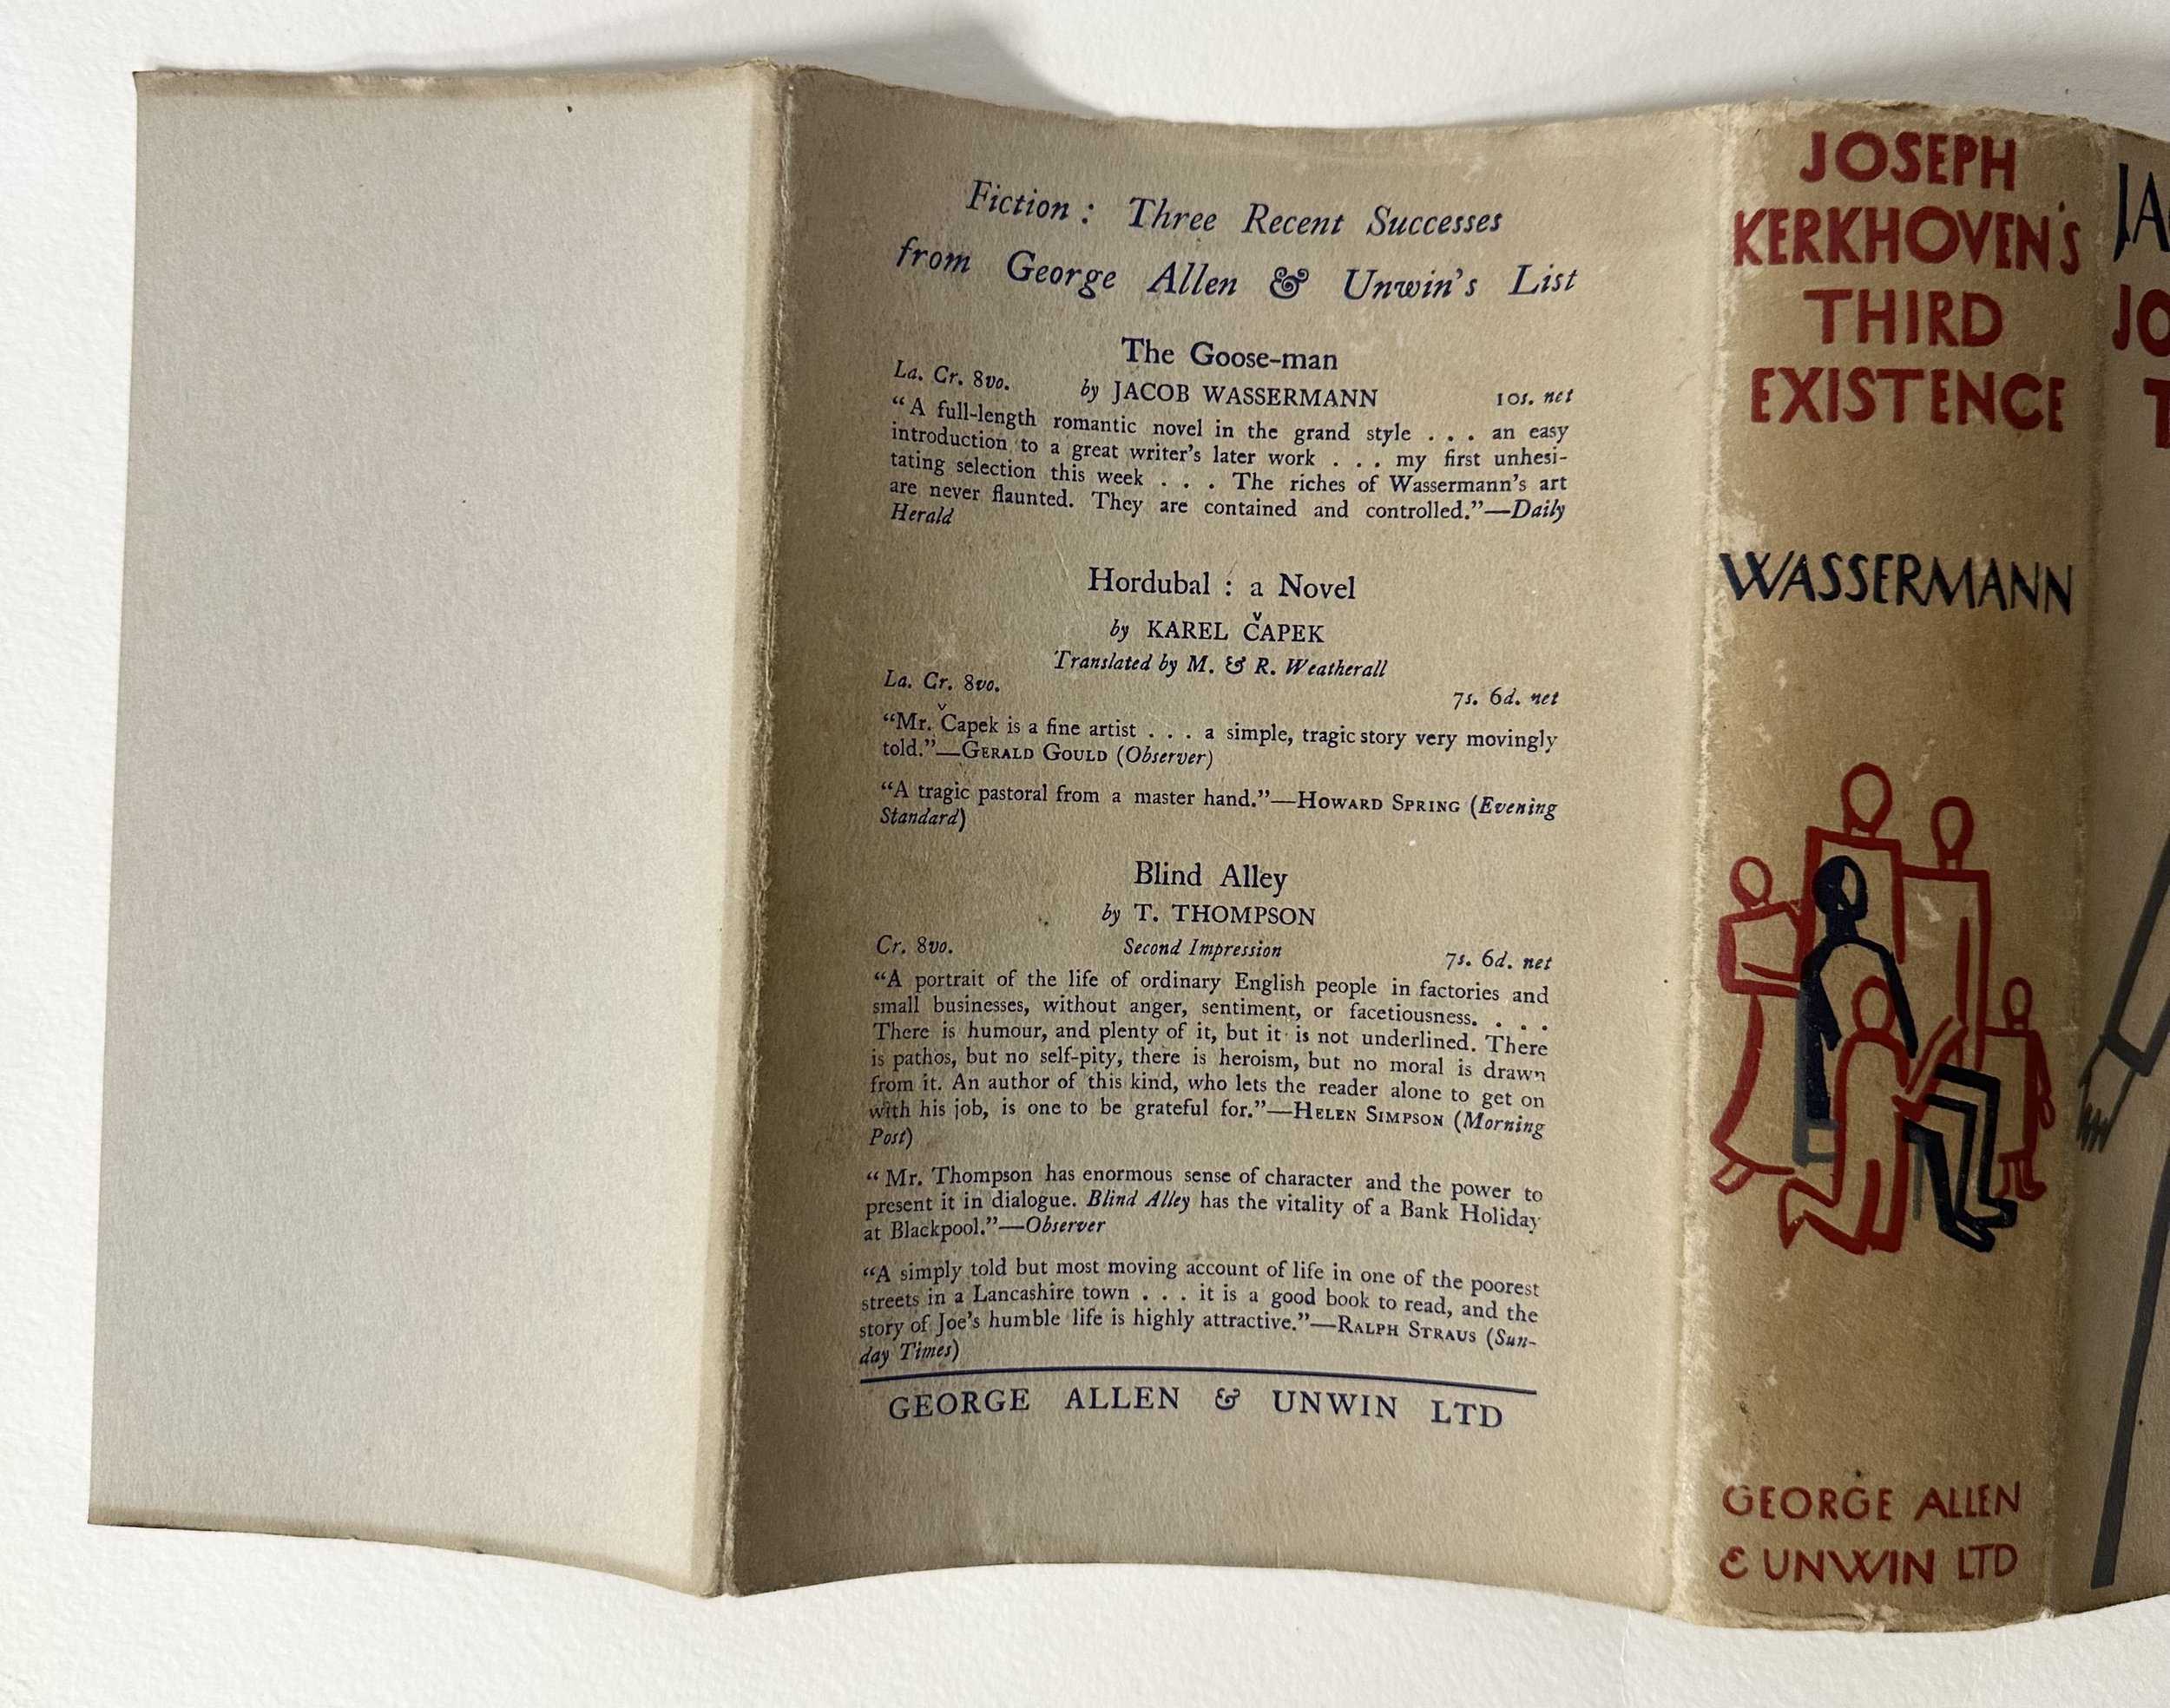 Fiction : Three Recent Successes
from George Allen & Unwin's List
The Goose-man
La. Cr. 8vo. by JACOB WASSERMANN 10s. net
“A full-length romantic novel in the grand style . . . an easy
introduction to a great writer's later work . . . my first unhesi-
tating selection this week . . . The riches of Wassermann's art
are never flaunted. They are contained and controlled.”—Daily
Herald
Hordubal : a Novel
by KAREL ČAPEK
Translated by M. & R. Weatherall
La. Cr. 8vo. 7s. 6d. net
“Mr. Čapek is a fine artist . . . a simple, tragic story very movingly
told.”—GERALD GOULD (Observer)
“A tragic pastoral from a master hand.”—HOWARD SPRING (Evening
Standard)
Blind Alley
by T. THOMPSON
Cr. 8vo. Second Impression 7s. 6d. net
“A portrait of the life of ordinary English people in factories and
small businesses, without anger, sentiment, or facetiousness. . . .
There is humour, and plenty of it, but it is not underlined. There
is pathos, but no self-pity, there is heroism, but no moral is drawn
from it. An author of this kind, who lets the reader alone to get on
with his job, is one to be grateful for.”—HELEN SIMPSON (Morning
Post)
“Mr. Thompson has enormous sense of character and the power to
present it in dialogue. Blind Alley has the vitality of a Bank Holiday
at Blackpool.”—Observer
“A simply told but most moving account of life in one of the poorest
streets in a Lancashire town . . . it is a good book to read, and the
story of Joe's humble life is highly attractive.”—RALPH STRAUS (Sun-
day Times)
GEORGE ALLEN & UNWIN LTD
JOSEPH
KERKHOVEN'S
THIRD
EXISTENCE
WASSERMANN
GEORGE ALLEN
& UNWIN LTD
JA
JO
T